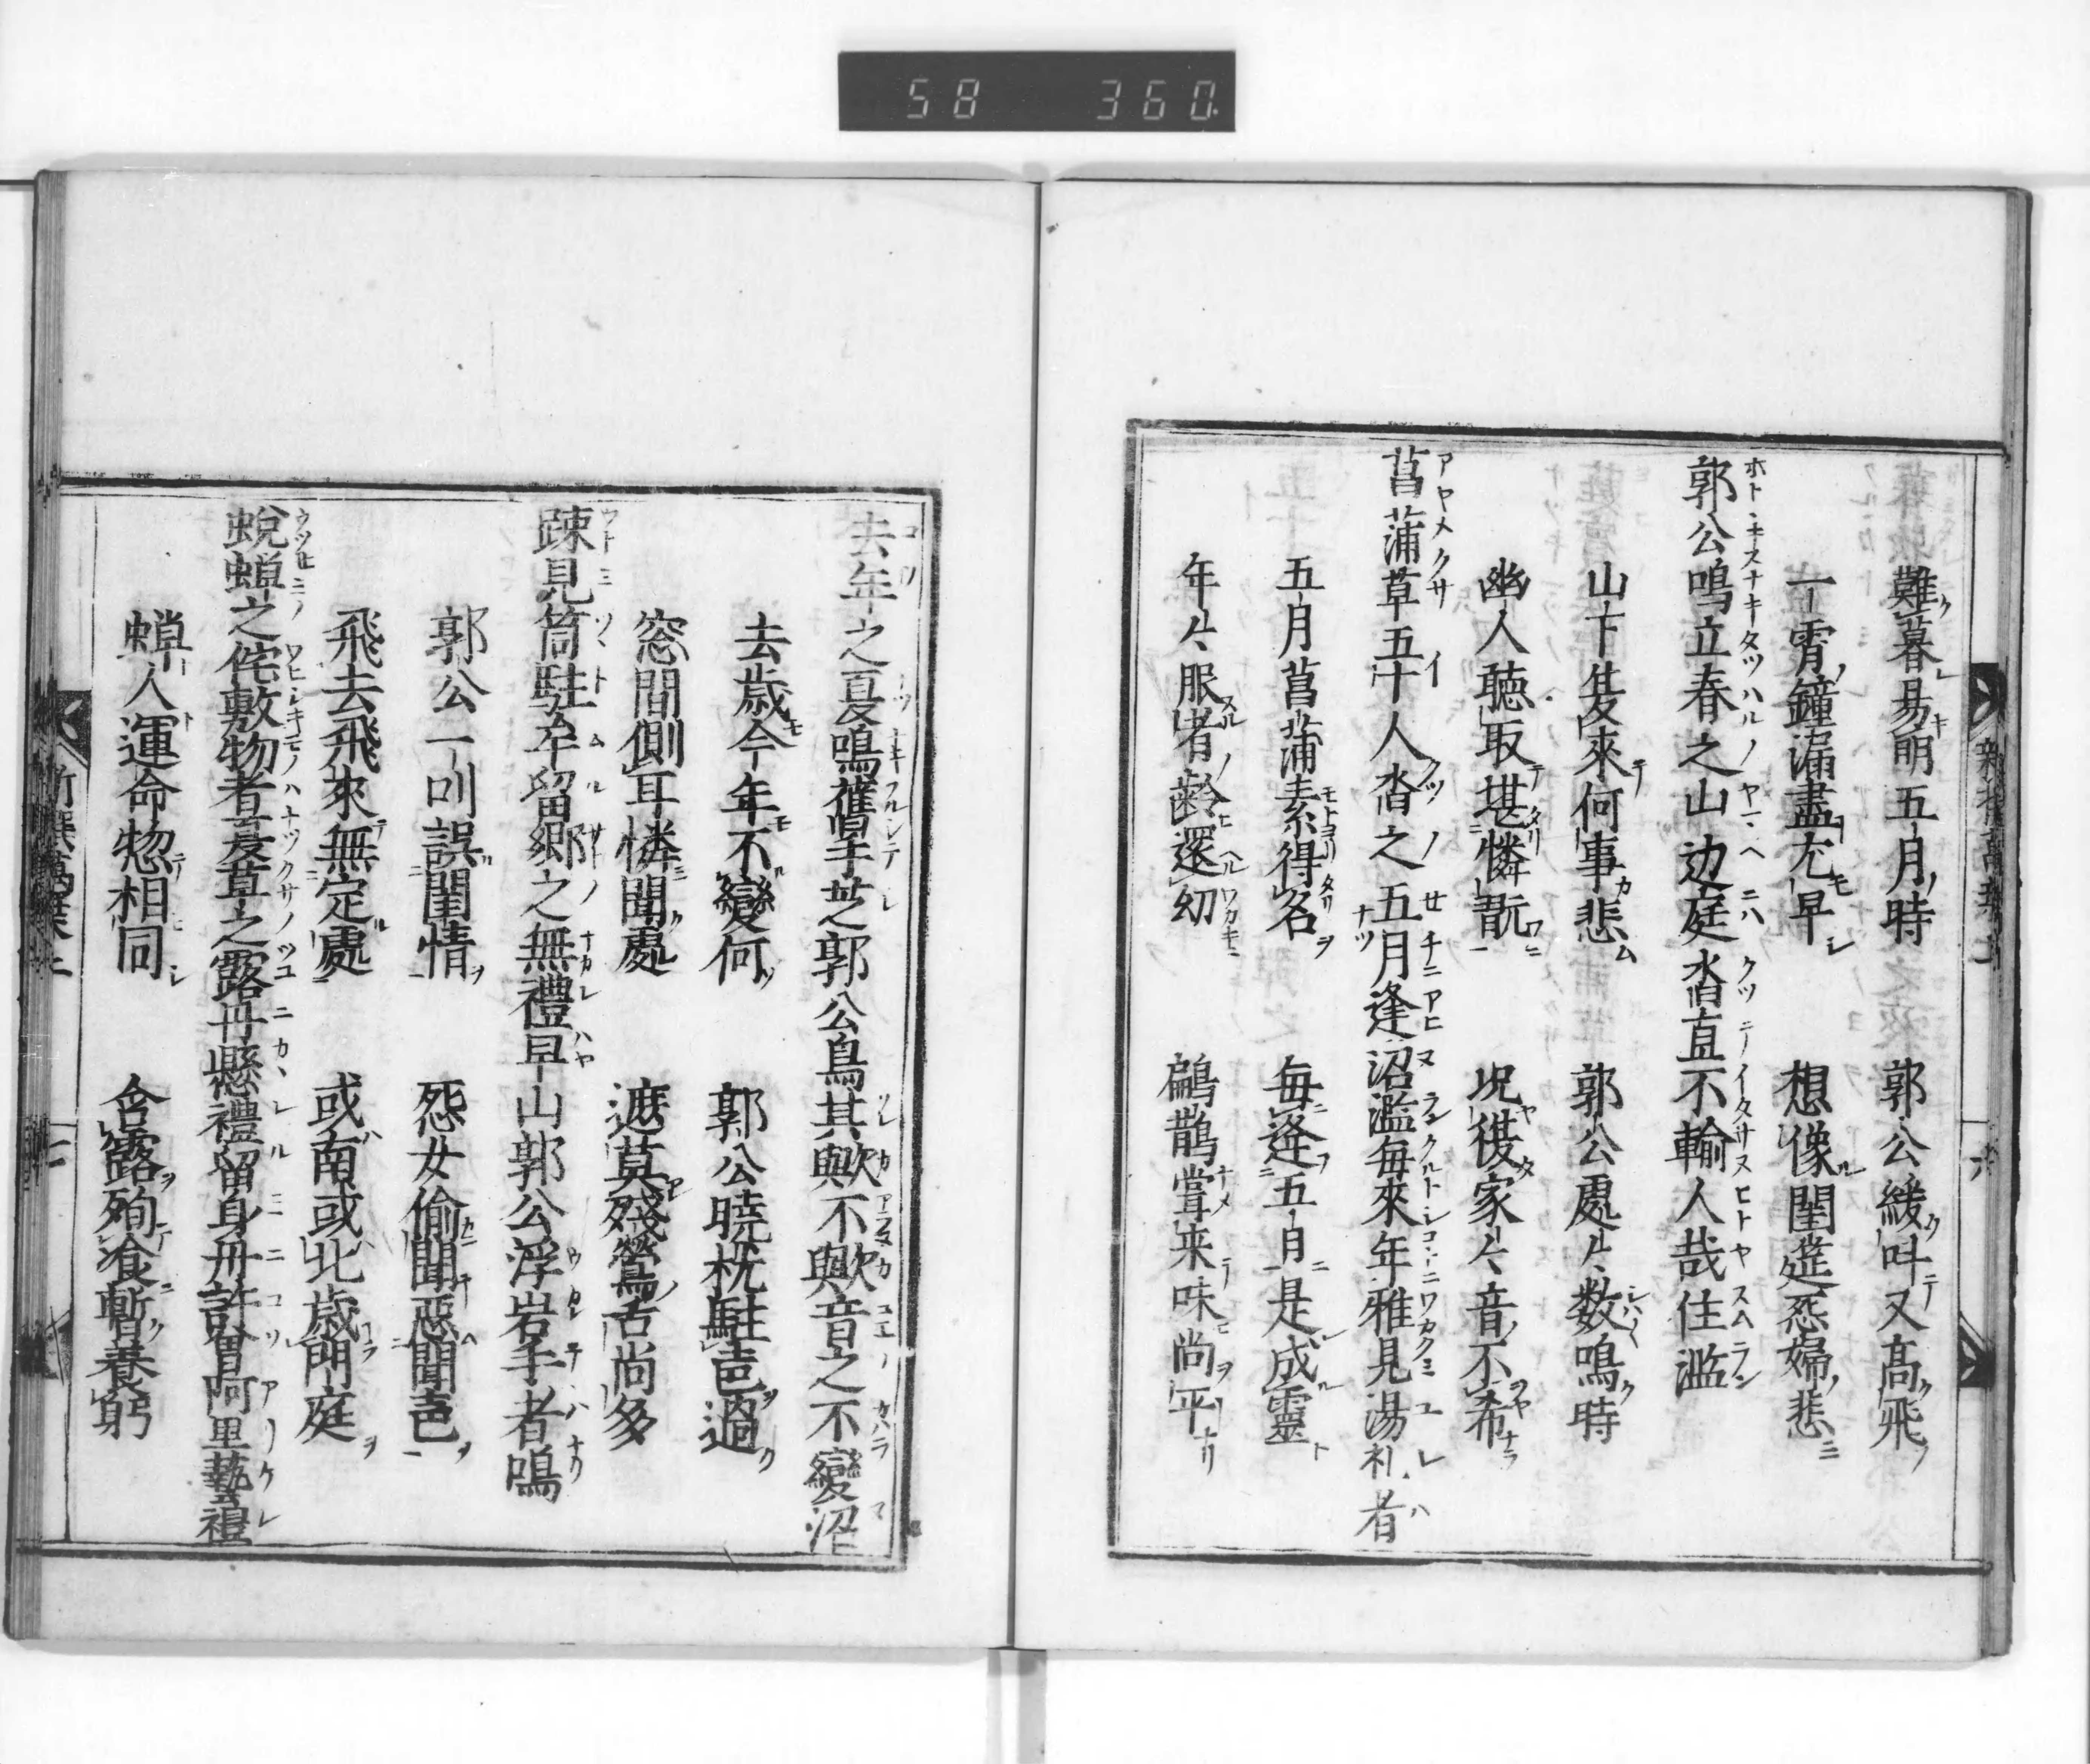 58 360
難暮易明五月時 郭公緩叫又高飛
一霄鐘漏盡尤早 想像閨筵怨婦悲
郭公鳴立春之山辺庭沓直不輸人哉住濫
山下隻來何事悲 郭公處々数鳴時
幽人聴取堪憐翫 況復家々音不希
菖蒲草五十人沓之五月逢沼濫每來年雅見湯礼者
五月菖蒲素得名 每逢五月是成靈
年々服者齢還幼 鶣鵲嘗来味尚平
新撰萬葉上 六
去年之夏鳴舊手芝之郭公鳥其歟不歟音之不變沼
去歳今年不變何 郭公曉枕駐声過
窓間側耳憐聞處 遮莫殘鶯舌尚多
踈見筒駐牟留郷之無禮早山郭公浮岩手者鳴
郭公一叫誤閨情 怨女偷聞惡聞声
飛去飛來無定處 或南或北歳門庭
蛻蟬之侘敷物者夏草之露丹懸禮留身丹許曾阿里藝禮
蟬人運命惣相同 含露殉飡暫養躬
新撰萬葉上 七